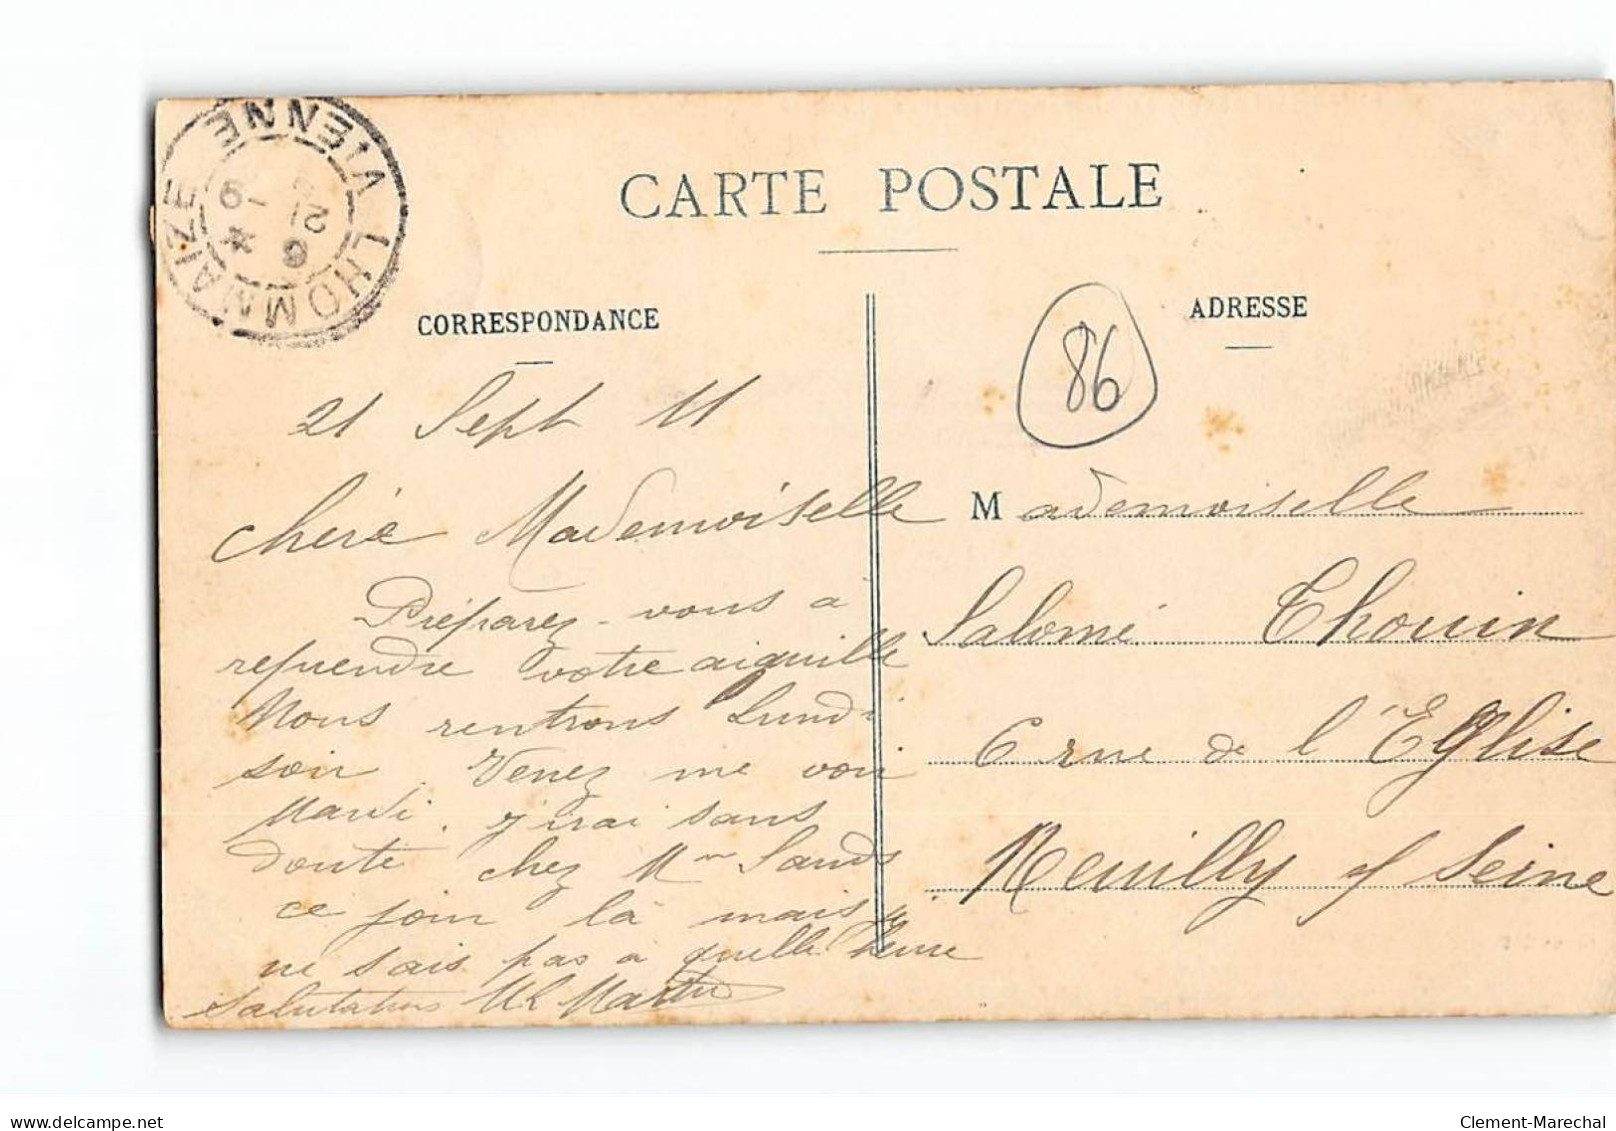 LHOMMAIZE
VIENNE
6
21
9
CARTE POSTALE
CORRESPONDANCE
ADRESSE
86
21 Sept 11
Chère Mademoiselle
Préparez-vous à
reprendre votre aiguille
Nous rentrons Lundi
soir. Venez me voir
Mardi. j'irai sans
doute chez Mme Sands
ce jour là mais je
ne sais pas à quelle heure
Salutations Martin
Mademoiselle
Salomé Thouin
6 rue de l'Eglise
Neuilly s/ Seine
delcampe.net
Clement-Marechal